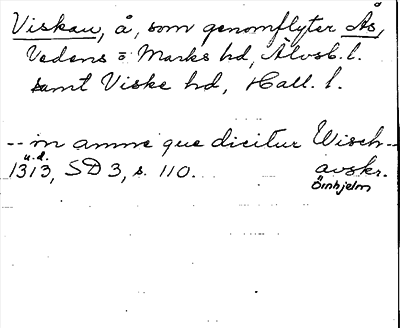 Viskan, å, som genomflyter Ås,
Vedens o Marks hd, Älvsb. l.
samt Viske hd, Hall. l.
-- in amne que dicitur Wisch --
u.d.
1313, SD 3, s. 110... avskr.
Örnhjelm